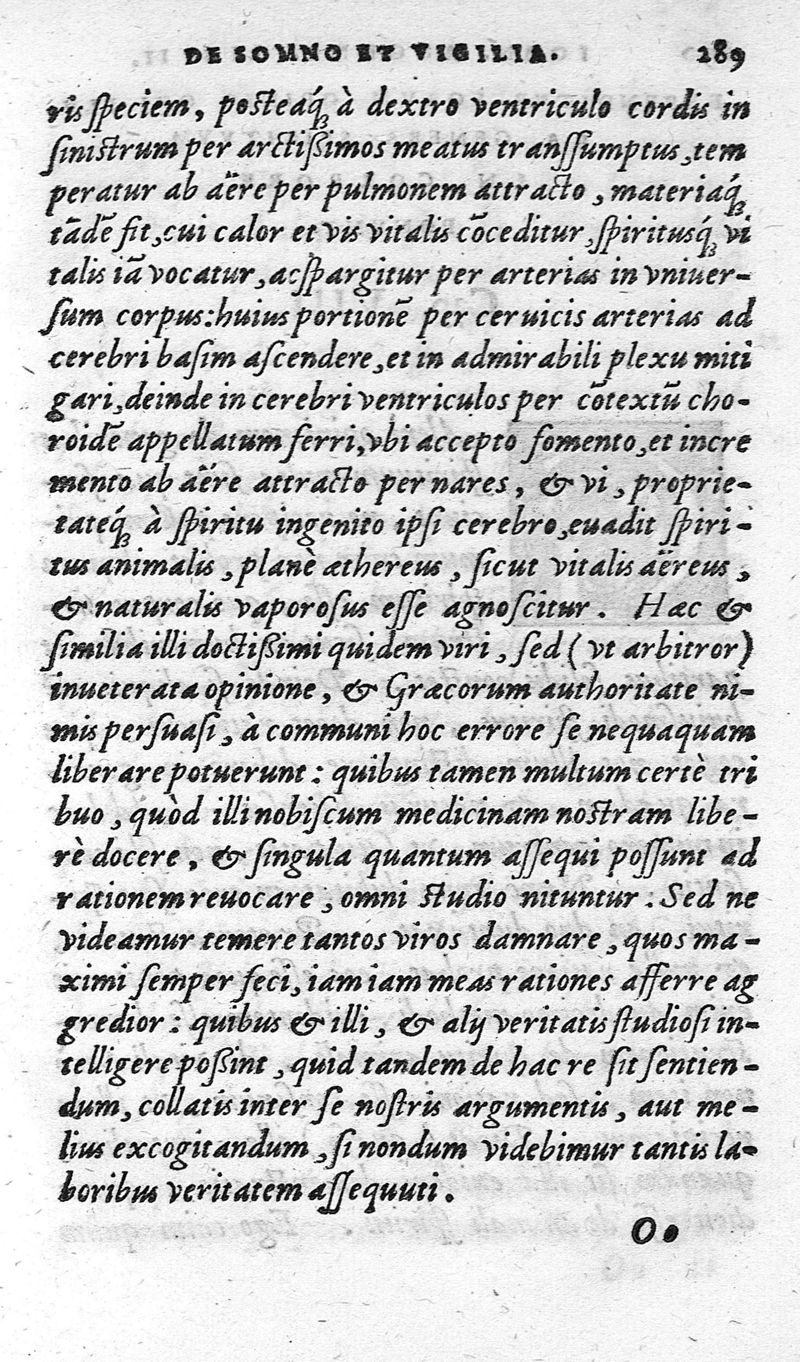 DE SOMNO ET VIGILIA. 289
ris ſpeciem, poſteaq́ꝫ à dextro ventriculo cordis in
ſiniſtrum per arctißimos meatus tranſſumptus, tem
peratur ab aëre per pulmonem attracto, materiaq́ꝫ
tādē fit, cui calor et vis vitalis cōceditur, ſpiritusq́ꝫ vi
talis iā vocatur, ac ſpargitur per arterias in vniuer-
ſum corpus: huius portionē per ceruicis arterias ad
cerebri baſim aſcendere, et in admirabili plexu miti
gari, deinde in cerebri ventriculos per cōtextū cho-
roidē appellatum ferri, vbi accepto fomento, et incre
mento ab aëre attracto per nares, & vi, proprie-
tateq́ꝫ à ſpiritu ingenito ipſi cerebro, euadit ſpiri-
tus animalis, planè æthereus, ſicut vitalis aëreus,
& naturalis vaporoſus eſſe agnoſcitur. Hæc &
ſimilia illi doctißimi quidem viri, ſed (vt arbitror)
inueterata opinione, & Græcorum authoritate ni-
mis perſuaſi, à communi hoc errore ſe nequaquam
liberare potuerunt: quibus tamen multum certè tri
buo, quòd illi nobiſcum medicinam noſtram libe-
rè docere, & ſingula quantum aſſequi poſſunt ad
rationem reuocare, omni ſtudio nituntur. Sed ne
videamur temere tantos viros damnare, quos ma-
ximi ſemper feci, iam iam meas rationes afferre ag
gredior: quibus & illi, & alij veritatis ſtudioſi in-
telligere poßint, quid tandem de hac re ſit ſentien-
dum, collatis inter ſe noſtris argumentis, aut me-
lius excogitandum, ſi nondum videbimur tantis la-
boribus veritatem aſſequuti.
O.